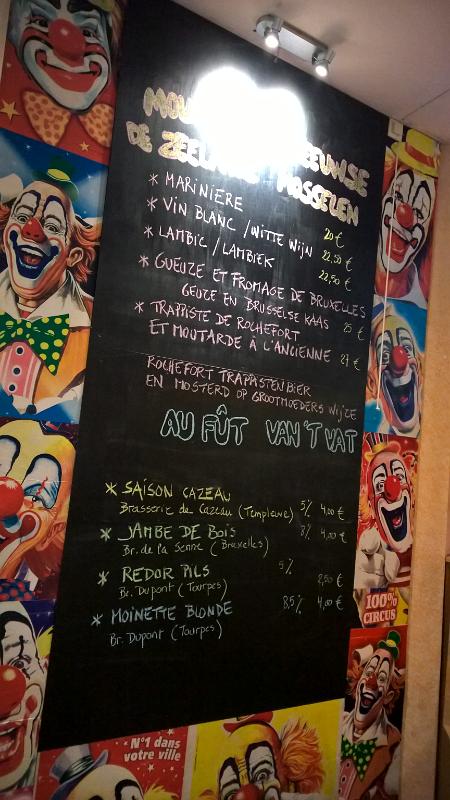 DE MOSSELEN
* MARINIÈRE 20 €
* VIN BLANC / WITTE WIJN 22,50 €
* LAMBIC / LAMBIEK 22,50 €
* GUEUZE ET FROMAGE DE BRUXELLES
GEUZE EN BRUSSELSE KAAS 25 €
* TRAPPISTE DE ROCHEFORT
ET MOUTARDE À L'ANCIENNE 24 €
ROCHEFORT TRAPPISTENBIER
EN MOSTERD OP GROOTMOEDERS WIJZE
AU FÛT VAN 'T VAT
* SAISON CAZEAU 5% 4,00 €
Brasserie de Cazeau (Templeuve)
* JAMBE DE BOIS 8% 4,00 €
Br. de la Senne (Bruxelles)
* REDOR PILS 5%
Br. Dupont (Tourpes)
* MOINETTE BLONDE 8,5% 4,00 €
Br. Dupont (Tourpes)
100%
CIRCUS
N°1 dans
votre ville